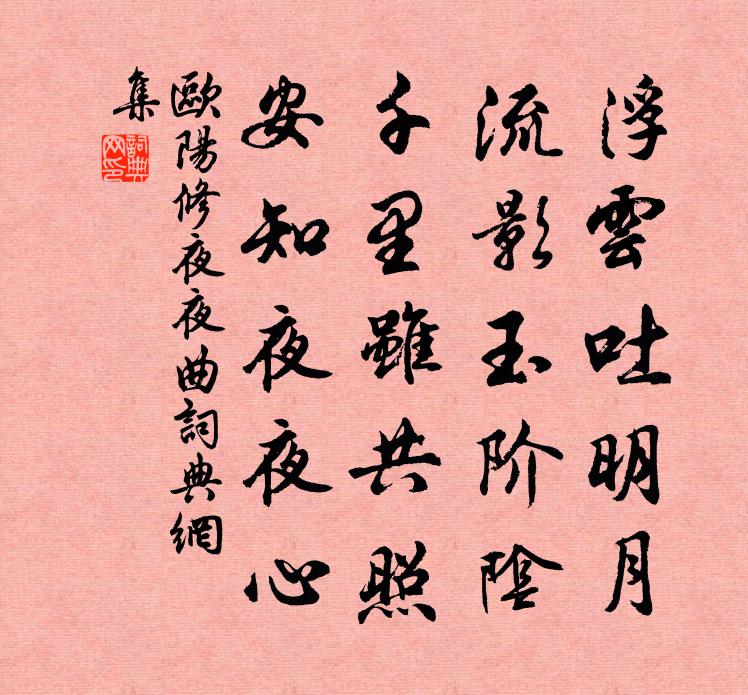 浮雲吐明月
流影玉阶陰
千里雖共照
安知夜夜心
歐陽修夜夜曲詞典網
集
詞典
网印